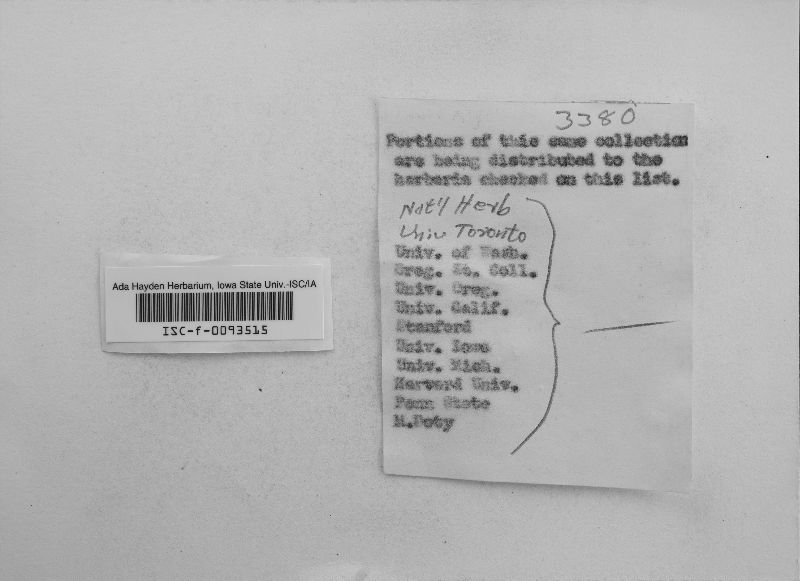 3380
Portions of this same collection
are being distributed to the
herbaria checked on this list.
Nat'l Herb
Univ Toronto
Univ. of Wash.
Oreg. St. Coll.
Univ. Oreg.
Univ. Calif.
Stanford
Univ. Iowa
Univ. Mich.
Harvard Univ.
Penn State
M.Doty
Ada Hayden Herbarium, Iowa State Univ.-ISC/IA
ISC-f-0093515